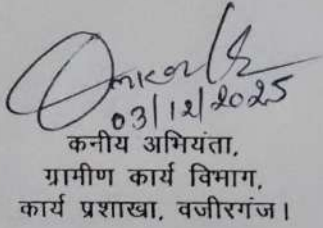 03/12/2025
कनीय अभियंता,
ग्रामीण कार्य विभाग,
कार्य प्रशाखा, वजीरगंज।